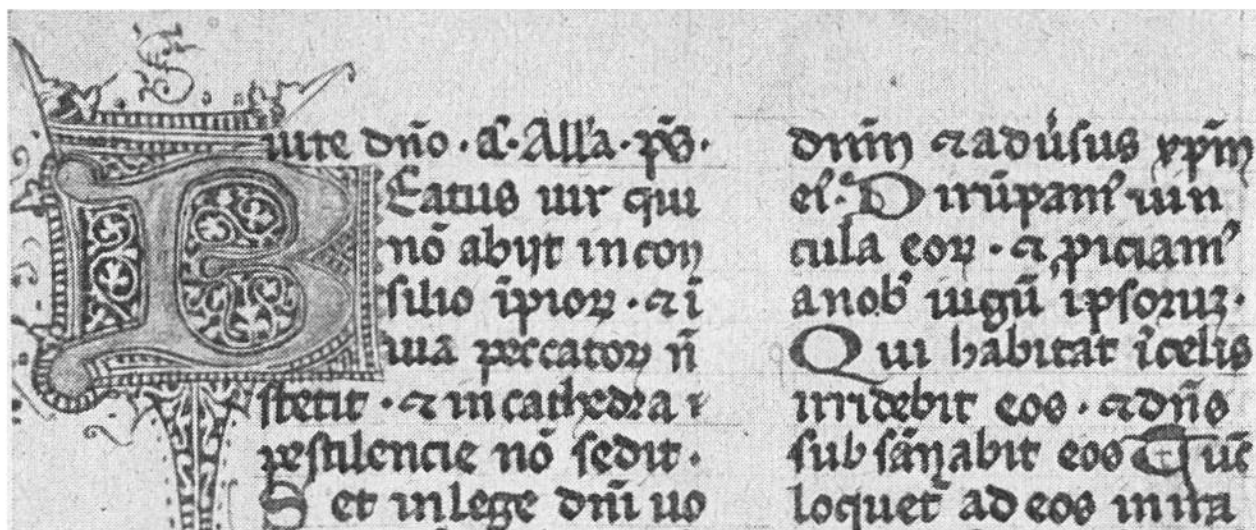 uite dño · a᷑· Alła · ps̄ ·
BEatus uir qui
nō abijt in con
silio īpioꝝ · ⁊ ī
uia peccatoꝝ n̄
stetit · ⁊ in cathedra
pestilencie nō sedit ·
Set in lege dn̄i uo
dn̄m ⁊ adu᷑sus xp̄m
ei᷑ · Dirūpam᷒ uin
cula eoꝝ · ⁊ ꝓiciam᷒
a nob᷒ iugū ipsoruꝫ ·
Qui habitat ī celis
irridebit eos · ⁊ dn̄s
subsānabit eos Tūc
loquet᷑ ad eos in ira